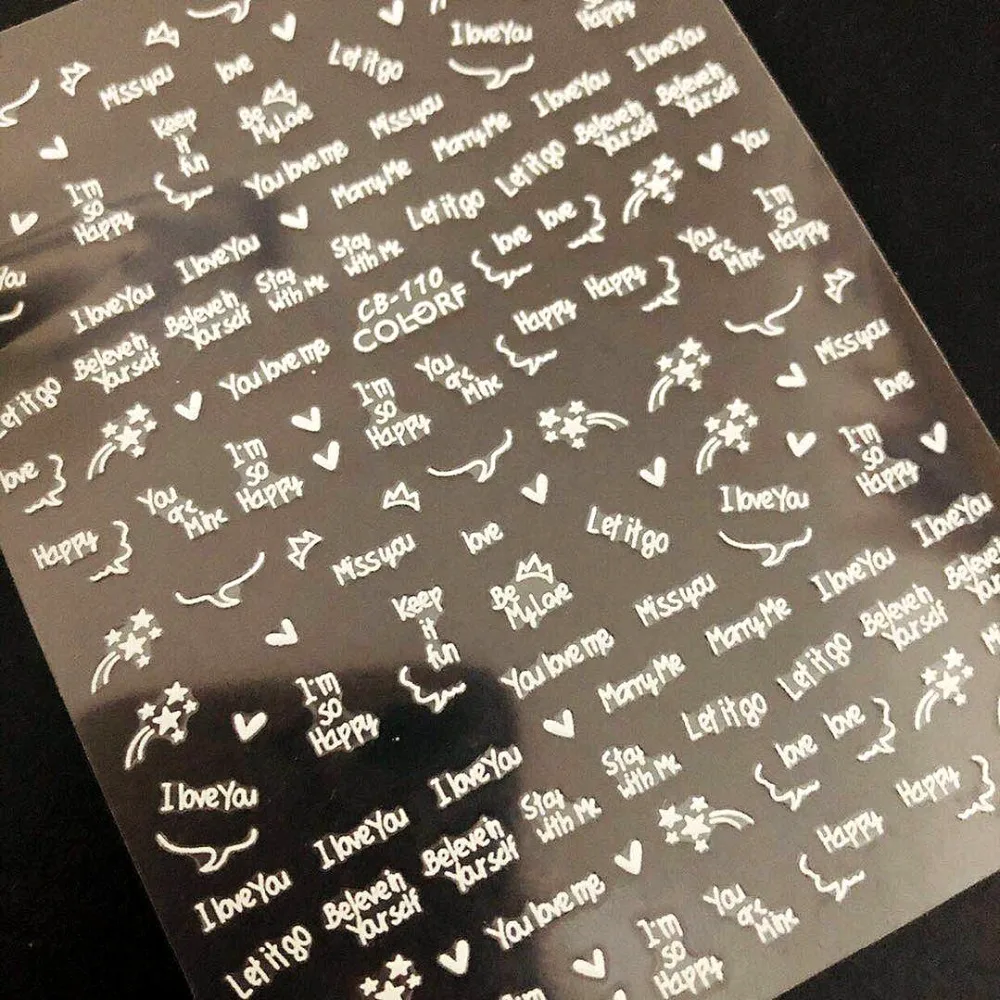 Happy
I love You
Let it go
I love You
love
Miss you
Be
My Love
Keep
it
fun
Miss you
I love You
Beleve in
Yourself
Marry Me
Beleve in
Yourself
You love me
Marry Me
Let it go
You
I'm
so
Happy
Let it go
love
love
I'm
so
Happy
You
are
Mine
I love You
Stay
with Me
I love You
Stay
with Me
CB-110
COLORF
Happy
Happy
Beleve in
Yourself
Beleve in
Yourself
You love me
You
are
Mine
Miss you
love
Let it go
I'm
so
Happy
I'm
so
Happy
I'm
so
Happy
love
You
are
Mine
Happy
Miss you
love
Let it go
I love You
I love You
Keep
it
fun
Be
My Love
Miss you
Marry Me
I love You
Beleve in
Yourself
Beleve in
Yourself
You love me
Marry Me
Let it go
Let it go
I'm
so
Happy
Stay
with Me
love
love
I love You
I love You
I love You
I love You
Stay
with Me
Happy
Happy
Beleve in
Yourself
Beleve in
Yourself
Let it go
You love me
You
are
Mine
I'm
so
Happy
I'm